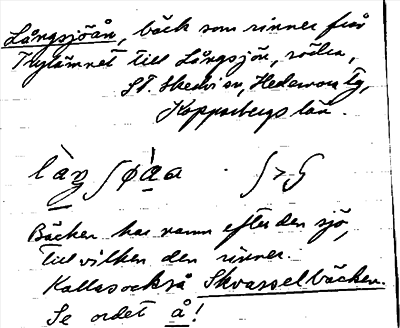 Långsjöån, bäck som rinner från
Flytämnet till Långsjön, södra,
St. Skedvi sn, Hedemora tg,
Kopparbergs län.
låŋ ʃøaa ʃ > ʃ
Bäcken har namn efter den sjö,
till vilken den rinner.
Kallas också Skvasselbäcken.
Se ordet å!